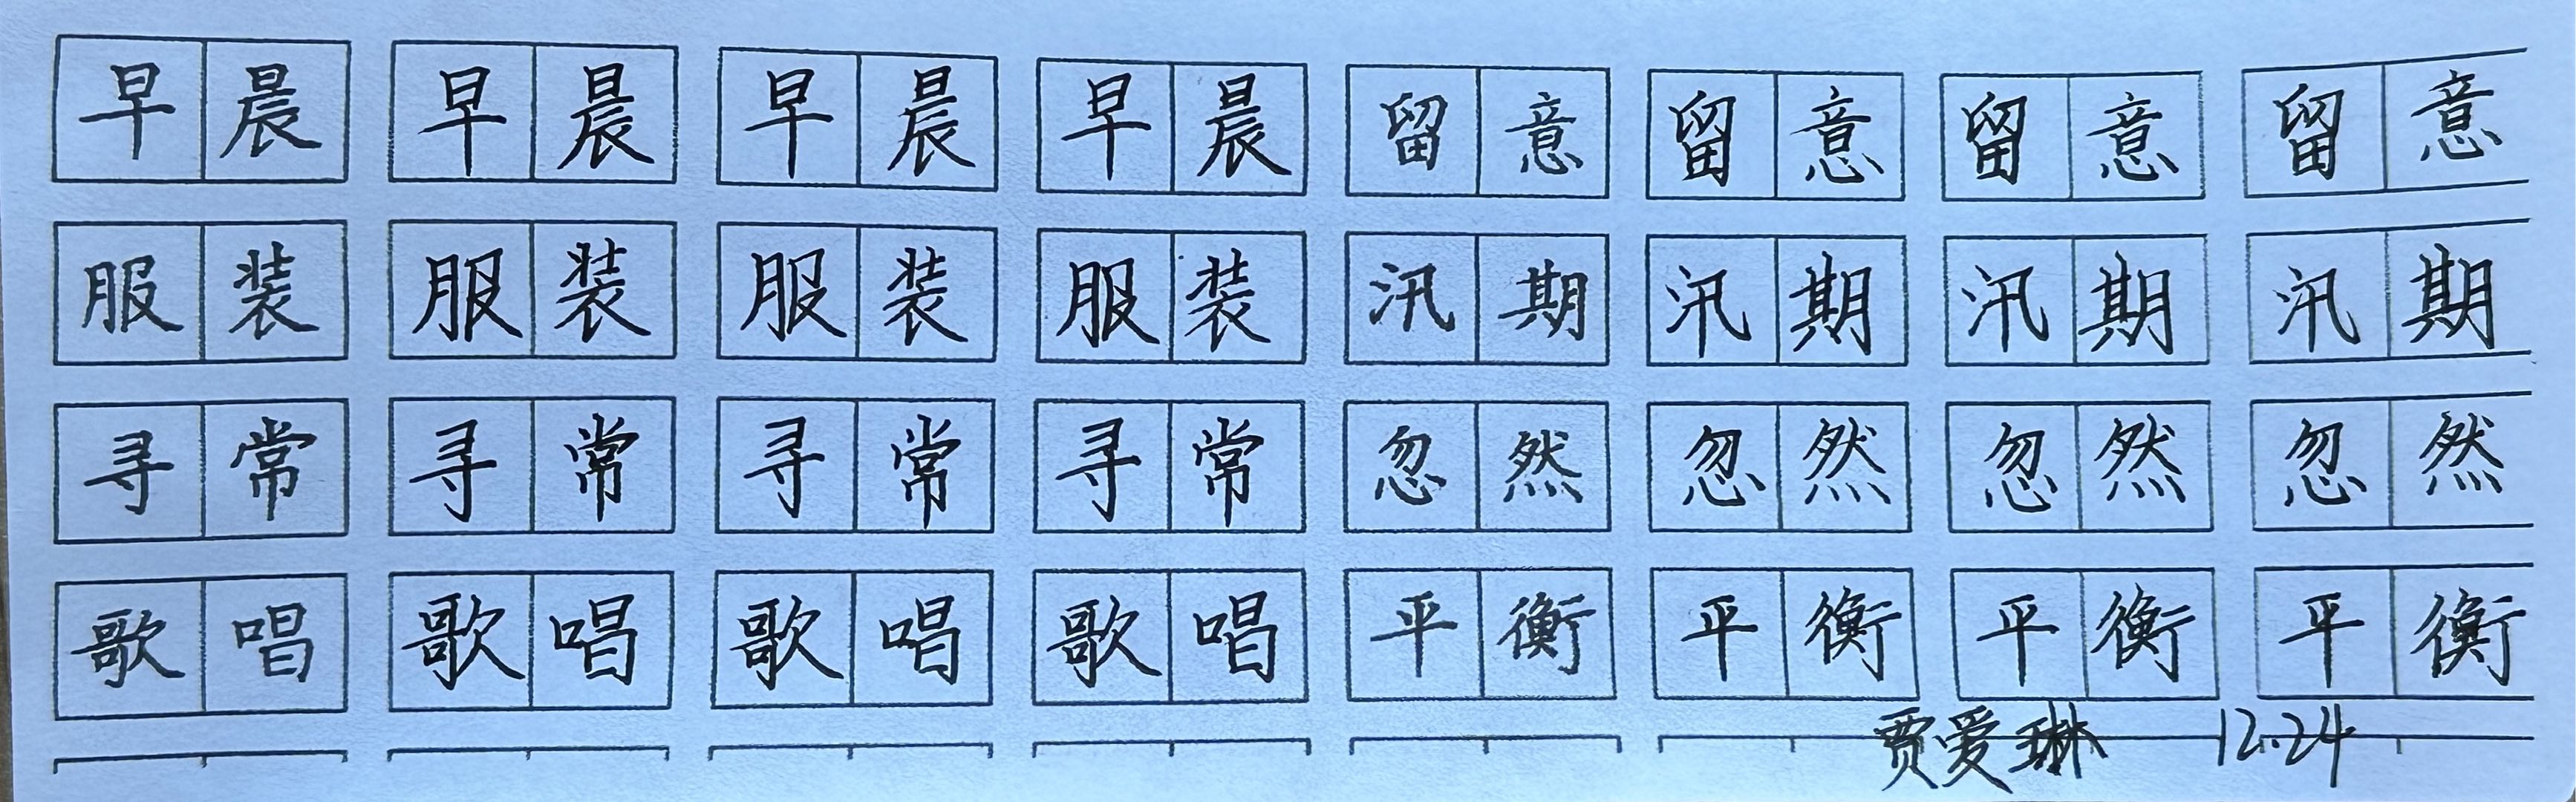 早晨 早晨 早晨 早晨 留意 留意 留意 留意
服装 服装 服装 服装 汛期 汛期 汛期 汛期
寻常 寻常 寻常 寻常 忽然 忽然 忽然 忽然
歌唱 歌唱 歌唱 歌唱 平衡 平衡 平衡 平衡
贾爱琳 12.24